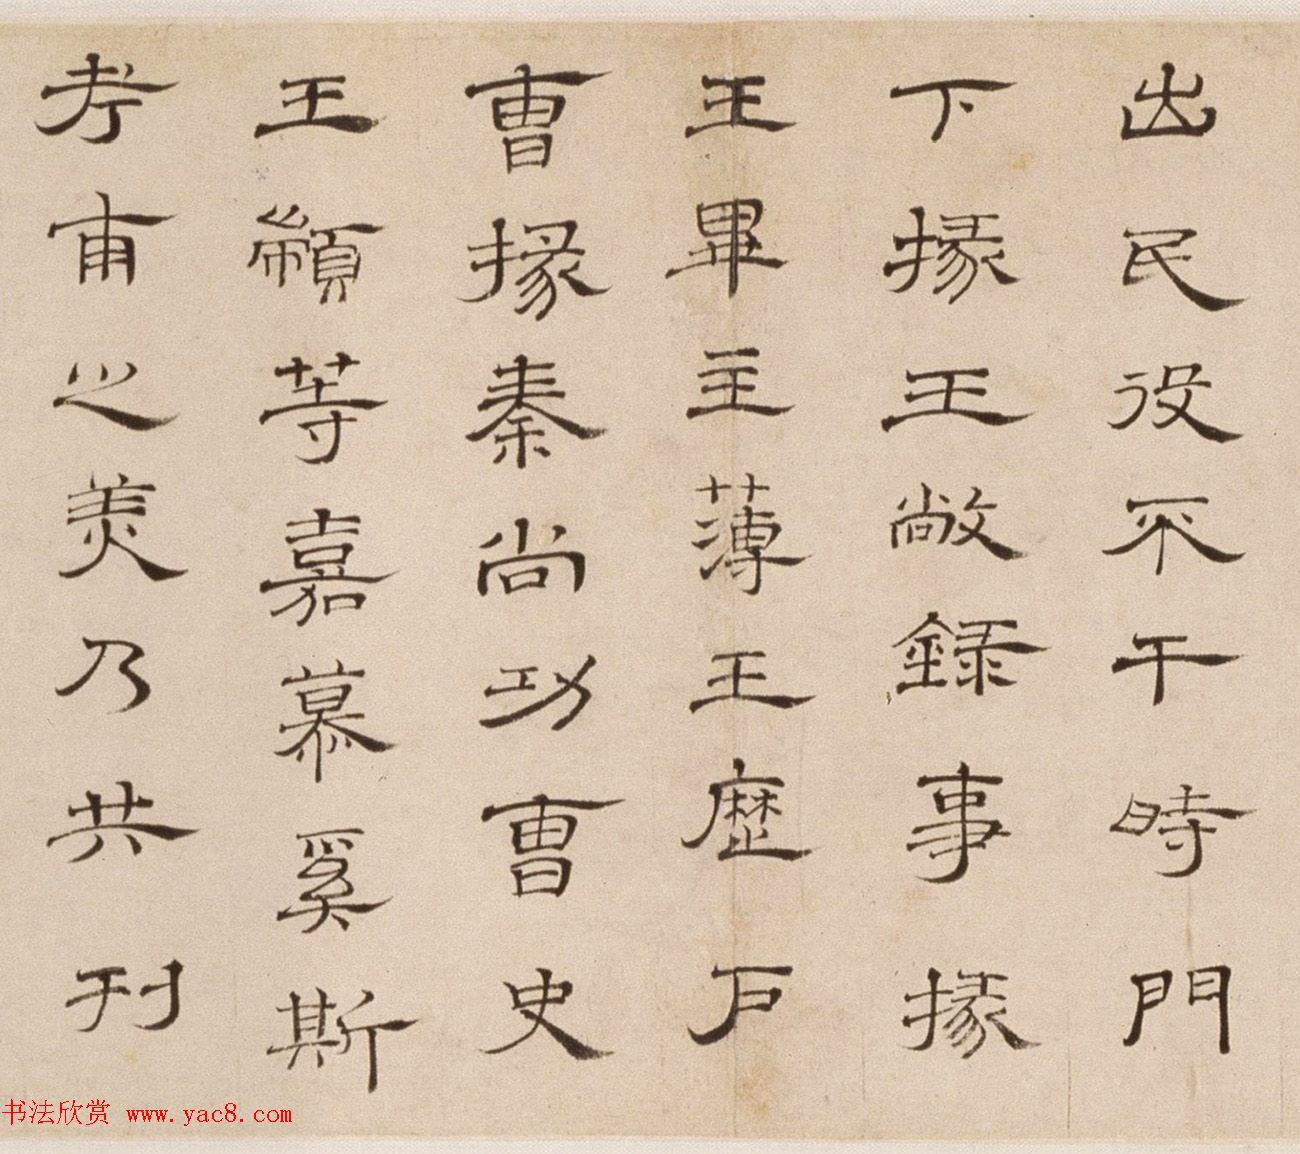 出民役不干時門
下掾王敞錄事掾
王畢主薄王歷戶
曹掾秦尚功曹史
王顓等嘉慕奚斯
考甫之美乃共刊
书法欣赏 www.yac8.com